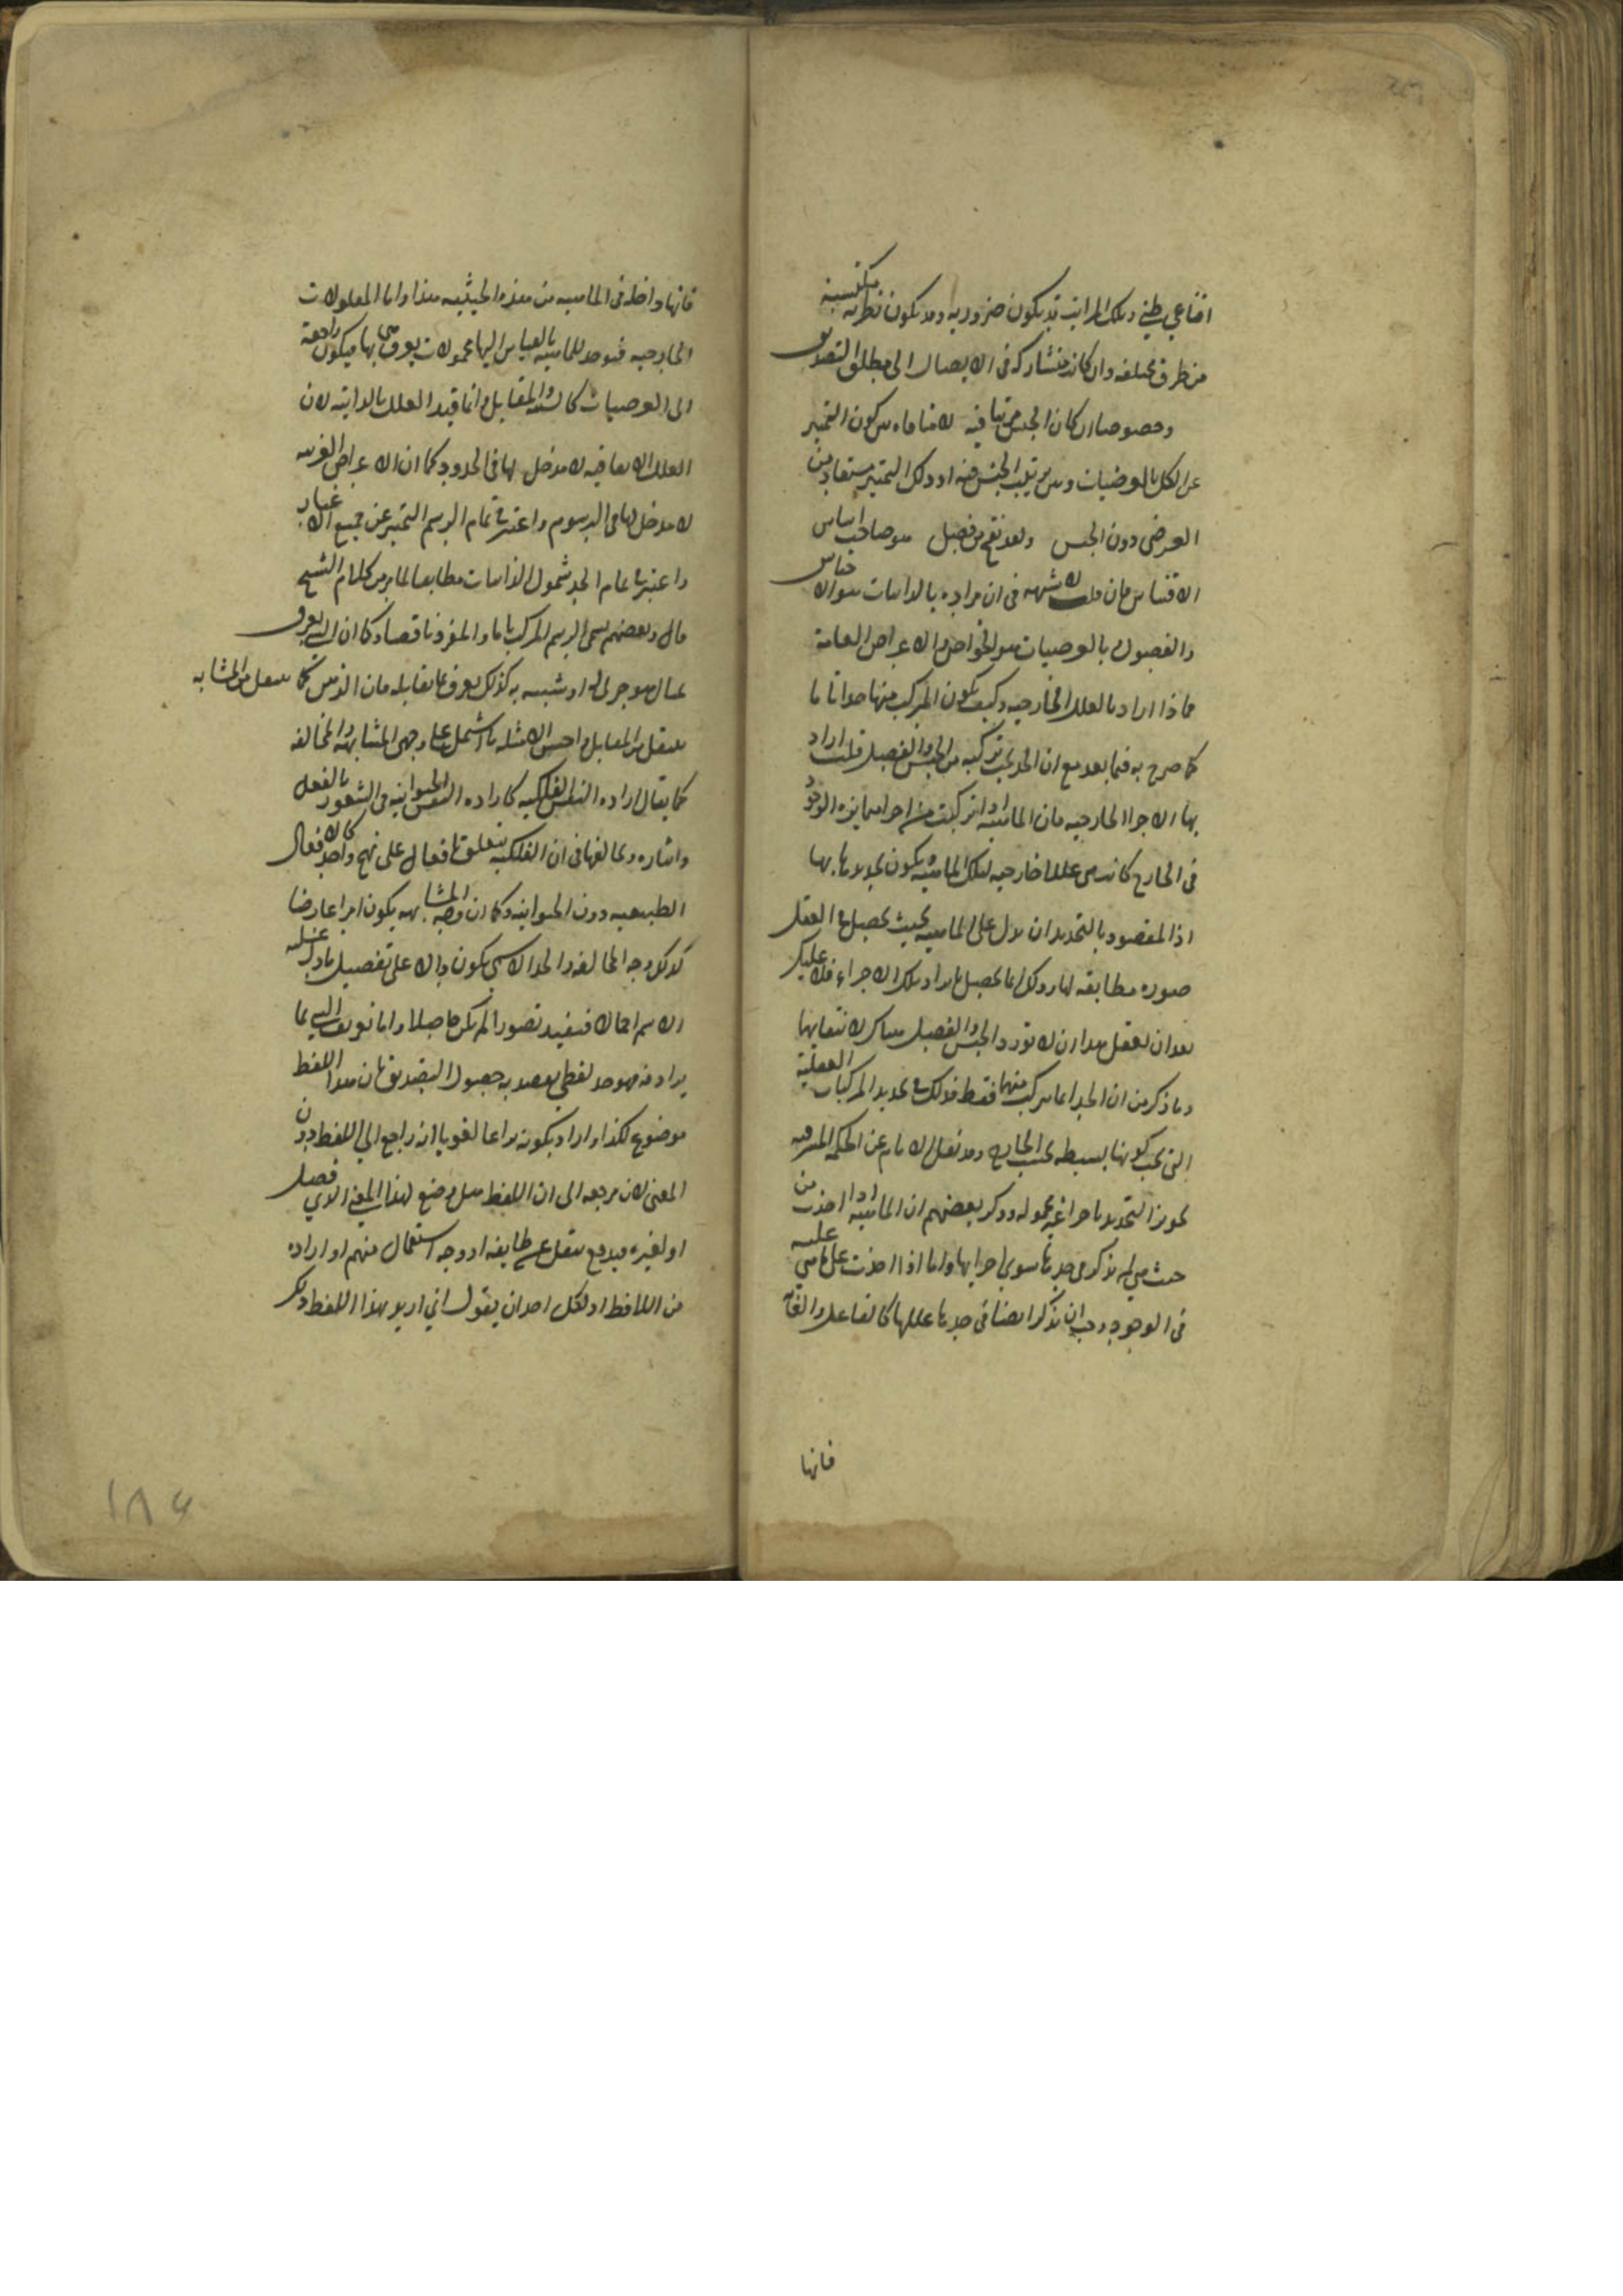 اقناعي ظني وتلك المراتب قد يكون ضروريه وقد يكون نظريه مكتسبة
من طرق مختلفه وان كانت متشاركه في الايصال الى مطلق التصديق
وخصوصا ان كان الجنس مرتبا فيه لا منافاه بين كون التميز
عن الكل بالعرضيات وبين ترتيب الجنس فيه اذ ذلك التميز مستفاد من
العرضي دون الجنس وبعد نقح من فصل هو صاحب اساس
الاقتباس فان قلت لا شبهه في ان مراده بالذاتيات هو الاجناس
والفصول وبالعرضيات هو الخواص والاعراض العامة
فماذا اراد بالعلل الخارجيه وكيف يكون المركب منها حدا تاما
كما صرح به فيما بعد مع ان الحد يجب تركبه من الجنس والفصل قلت اراد
بها الاجزاء الخارجيه فان الماهية اذا تركبت من اجزاء متمايزه الوجود
في الخارج كانت هي عللا خارجيه لتلك الماهية يكون تحديدها بها
اذ المقصود بالتحديد ان يدل على الماهيه بحيث يحصل في العقل
صوره مطابقه لها وذلك انما يحصل بايراد تلك الاجزاء فلا عليك
بعد ان تعقل هذا ان لا تورد الجنس والفصل هناك لانتفائهما
وما ذكر من ان الحد انما يتركب منهما فقط فذلك في تحديد المركبات العقلية
التي يجب كونها بسيطه بحسب الخارج وقد نقل الامام عن الحكمة المشرقيه
تجويز التحديد باجزاء غير محموله وذكر بعضهم ان الماهية اذا اخذت من
حيث هي لم يذكر في حدها سوى اجزايها واما اذا اخذت على ما هي عليه
في الوجود وجب ان يذكر ايضا في حدها عللها كالفاعل والغاية
فانها
فانها داخله في الماهيه من هذه الحيثيه هذا واما المعلولات
الخارجيه فتوجد للماهية بالقياس اليها محمولات يعرف هي بها فيكون راجعة
الى العرضيات كالشبه والمقابل وانما قيد العلل بالذاتية لان
العلل الاتفاقيه لا مدخل لها في الحدود كما ان الاعراض الغريبه
لا مدخل لها في الرسوم واعتبر في تمام الرسم التميز عن جميع الاغيار
واعتبر في تمام الحد شمول الذاتيات مطابقا لما مر من كلام الشيخ
قال وبعضهم يسمى الرسم المركب تاما والمفرد ناقصا وكما ان الشي يعرف
بمثال هو جزئي له او شبيه به كذلك يعرف بما يقابله فان الذهن كما ينتقل من المشابه
ينتقل من المقابل واحسن الامثله ما اشتمل على وجهي المشابهة والمخالفه
كما يقال اراده النفس الفلكيه كاراده النفس الحيوانيه في الشعور بالفعل
واثاره وتخالفها في ان الفلكيه يتعلق بافعال على نهج واحد كالافعال
الطبيعيه دون الحيوانيه وكما ان وجه المشابهه يكون امرا عارضا
كذلك وجه المخالفه والحد الاسمي يكون دالا على تفصيل ما دل عليه
الاسم اجمالا فيفيد تصورا لم يكن حاصلا واما تعريف الشي بما
يرادفه فهو حد لفظي يقصد به حصول التصديق بان هذا اللفظ
موضوع لكذا واراد بكونه نزاعا لغويا انه راجع الى اللفظ دون
المعنى لان مرجعه الى ان اللفظ هل وضع لهذا المعنى الذي فصل
او لغيره فيدفع بنقل عن طايفه او وجه استعمال منهم او اراده
من اللافظ اذ لكل احد ان يقول اني اريد بهذا اللفظ ذلك